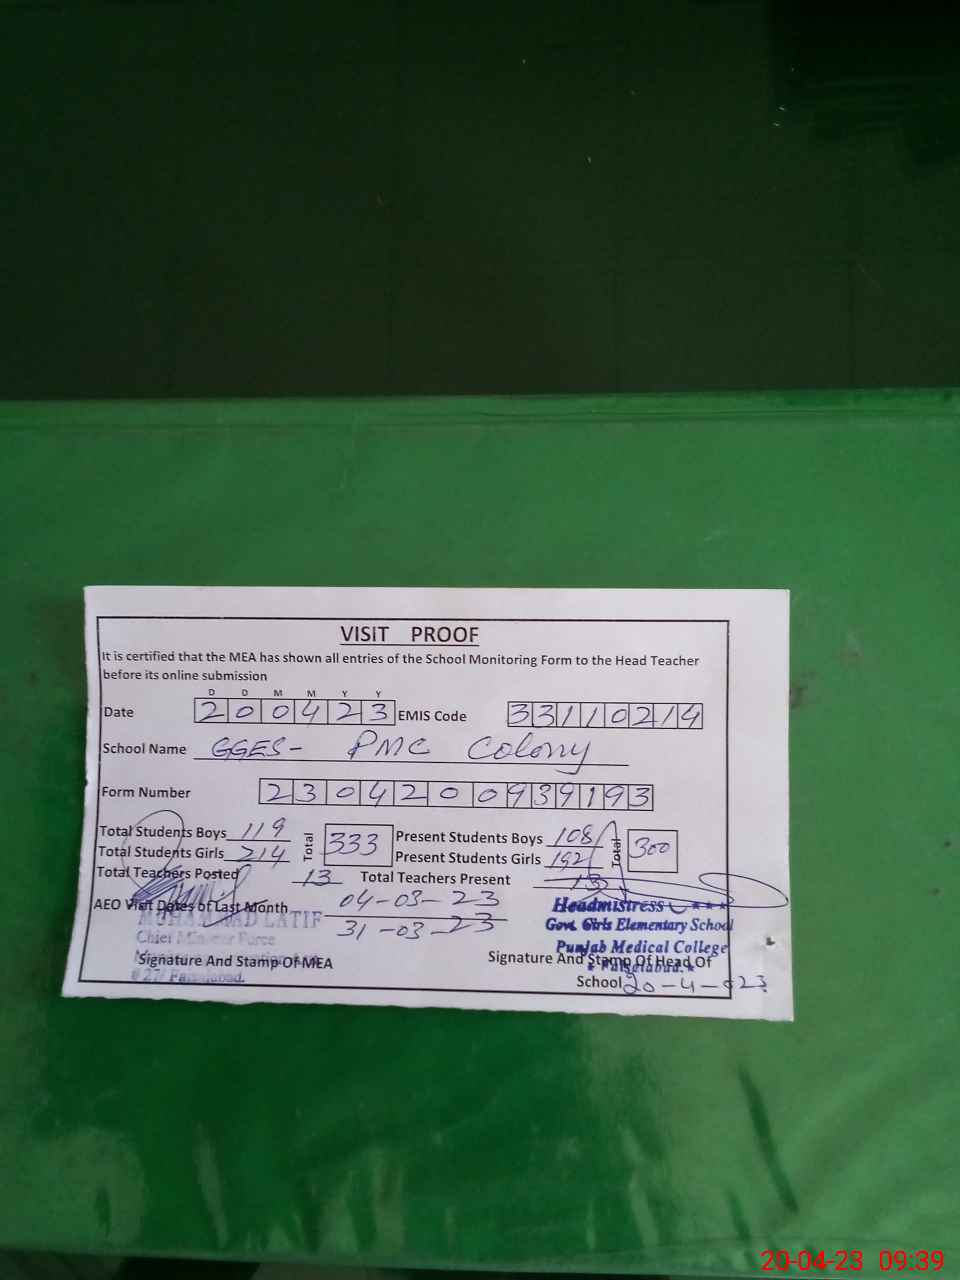 VISIT PROOF
It is certified that the MEA has shown all entries of the School Monitoring Form to the Head Teacher
before its online submission
D D M M Y Y
Date 200423 EMIS Code 33110214
School Name GGES- PMC Colony
Form Number 2304200939193
Total Students Boys 119 Total 333 Present Students Boys 108 Total 300
Total Students Girls 214 Present Students Girls 192
Total Teachers Posted 13 Total Teachers Present 13
AEO Visit Dates of Last Month 04-03-23
31-03-23
MUHAMMAD LATIF
Chief Minister Force
Signature And Stamp Of MEA
# 27/ Faisalabad.
Headmistress
Govt. Girls Elementary School
Punjab Medical College
Faisalabad.
Signature And Stamp Of Head Of
School 20-4-023
20-04-23 09:39